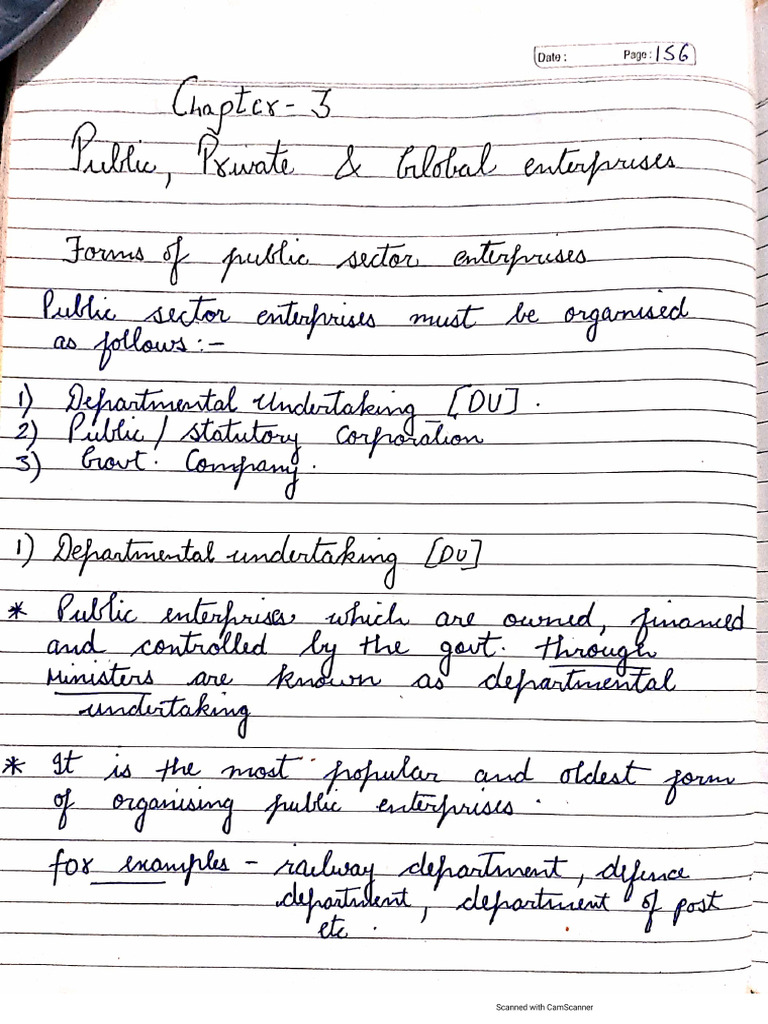 Date : Page : 156
Chapter - 3
Public, Private & Global enterprises
Forms of public sector enterprises
Public sector enterprises must be organised
as follows :-
1) Departmental Undertaking [DU] .
2) Public / statutory corporation
3) Govt. Company .
1) Departmental undertaking [DU]
* Public enterprises which are owned, financed
and controlled by the govt. through
Ministers are known as departmental
undertaking
* It is the most popular and oldest form
of organising public enterprises .
for examples - railway department, defence
department, department of post
etc .
Scanned with CamScanner